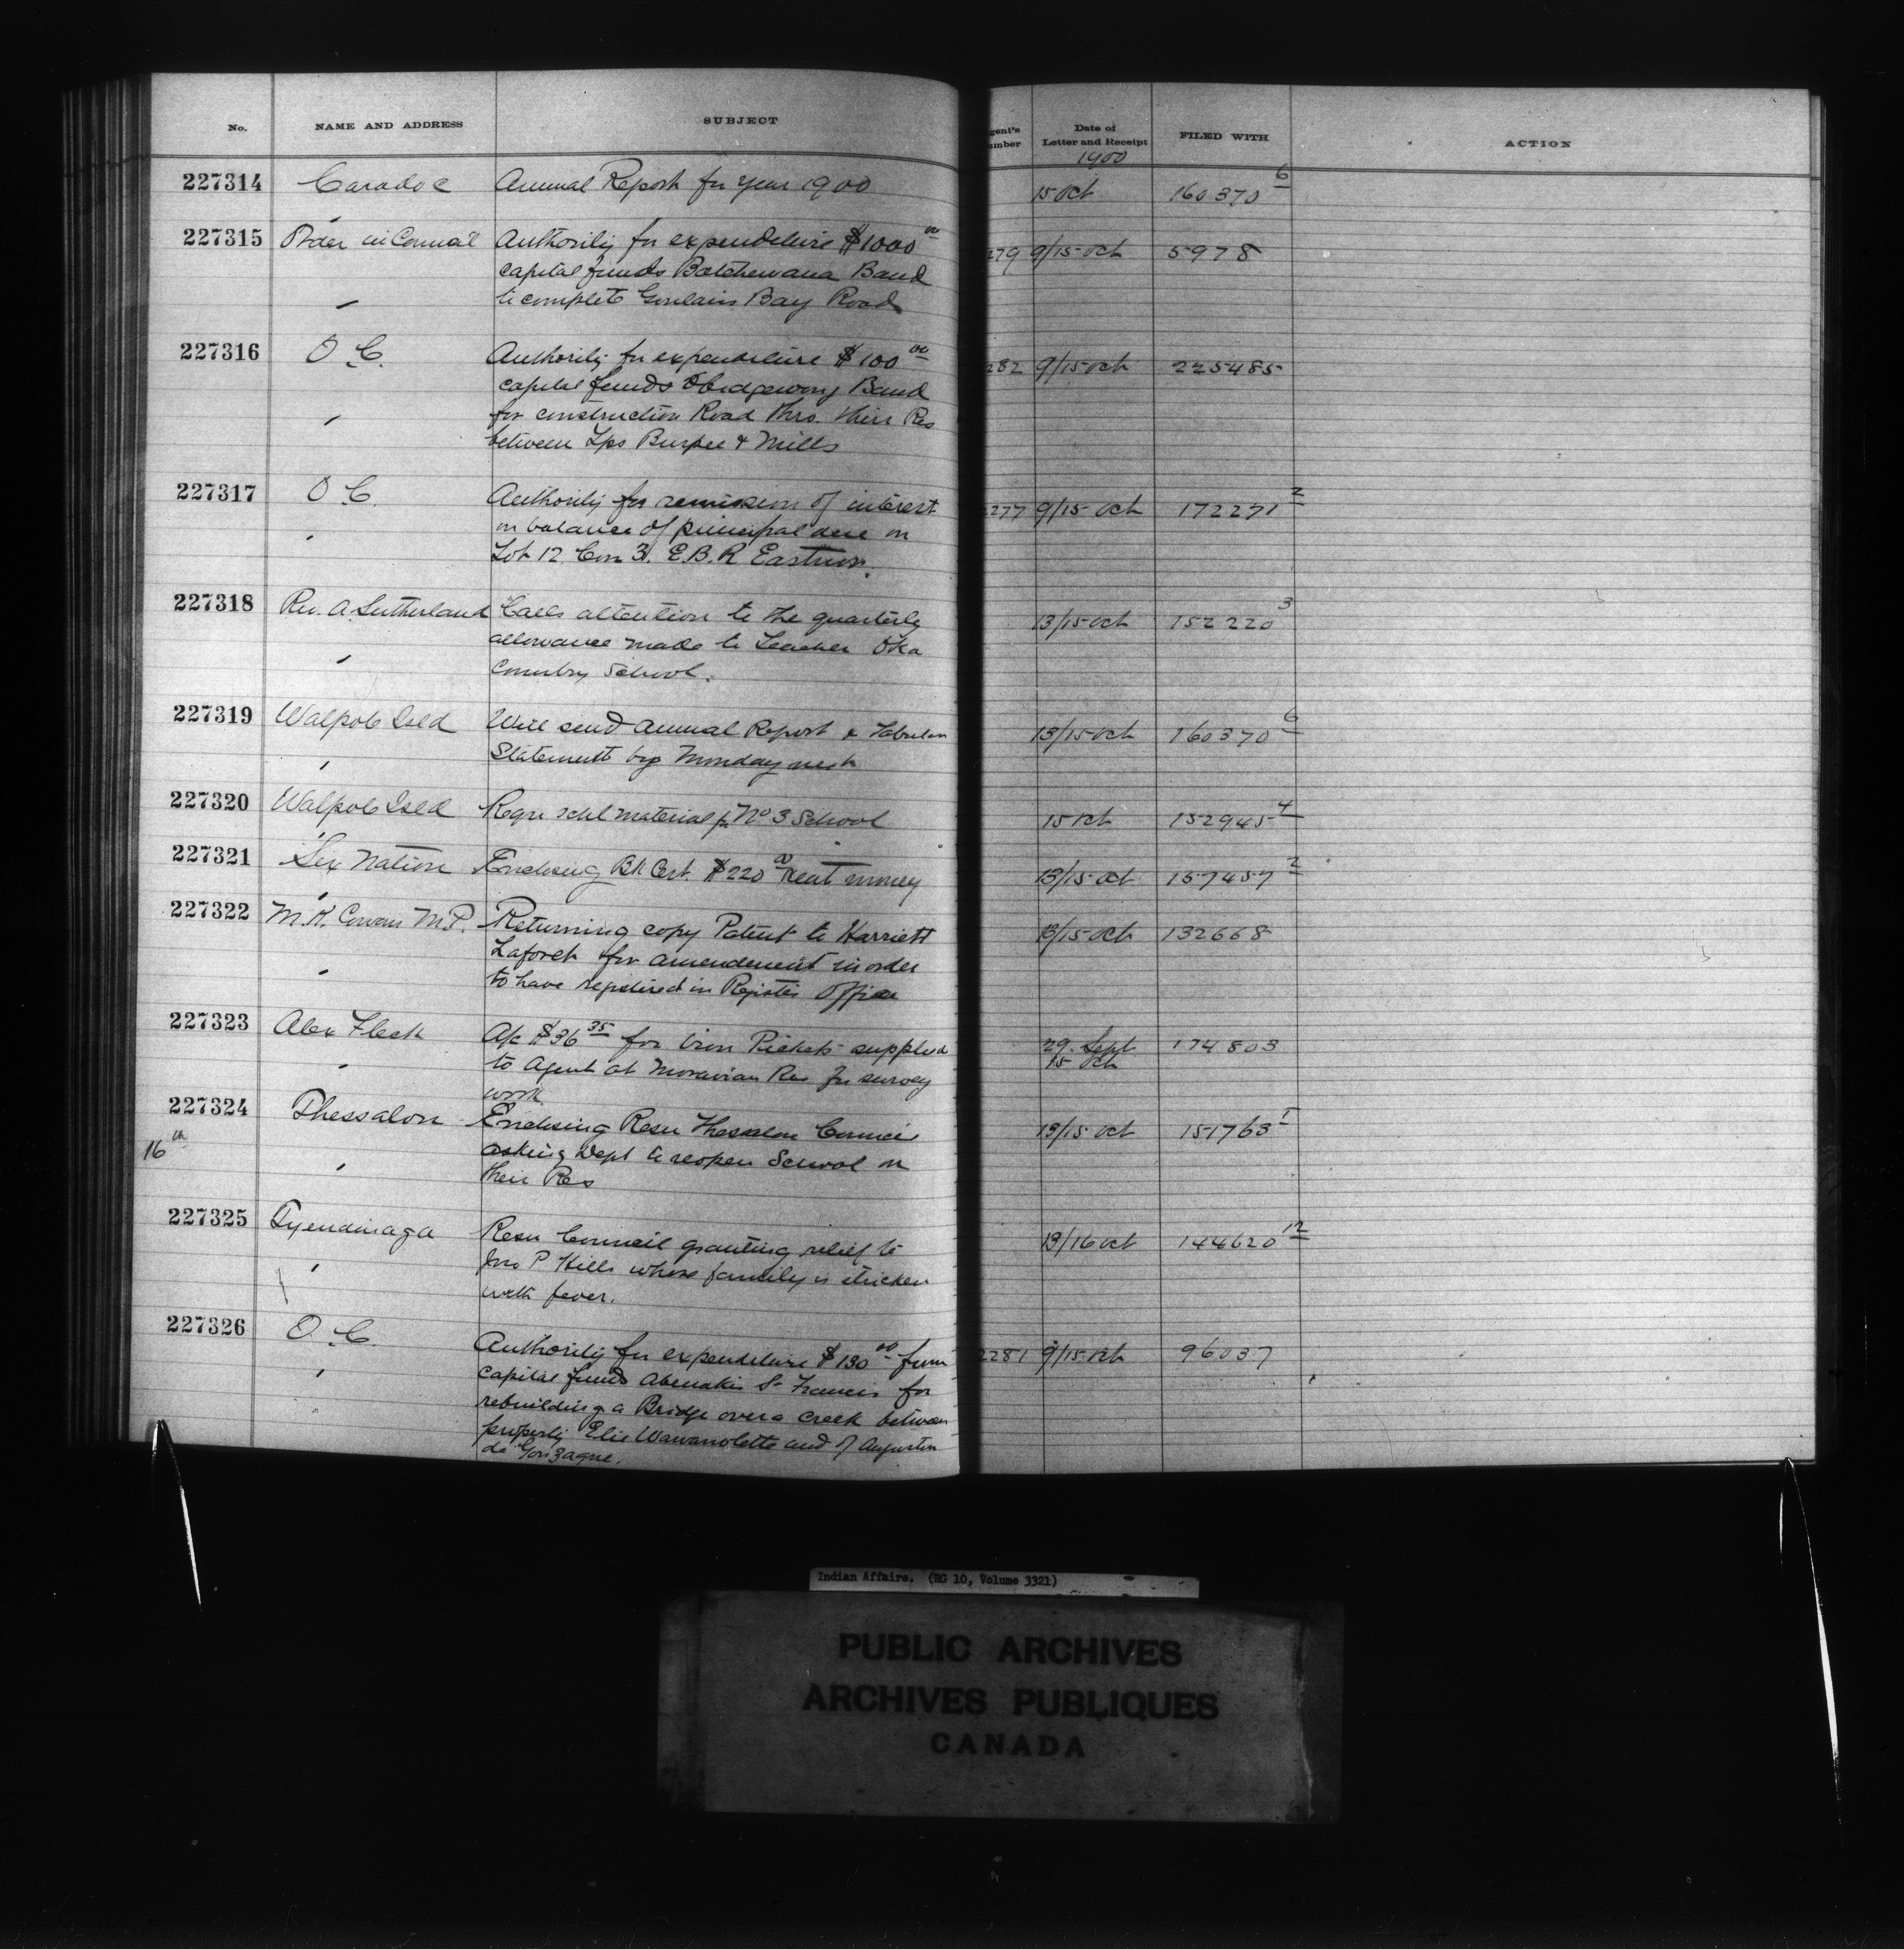 No. NAME AND ADDRESS SUBJECT gent's umber Date of Letter and Receipt FILED WITH ACTION
1900
227314 Caradoc Annual Report for year 1900 15 Oct 160370 6
227315 Order in Council Authority for expenditure $1000 00 279 9/15 Oct 5978
capital funds Batchewana Band
to complete Goulais Bay Road
227316 O C. Authority for expenditure $100 00 282 9/15 Oct 225485
capital funds Obidgewong Band
for construction Road thro. their Res
between Tps Burpee & Mills
227317 O C. Authority for remission of interest 2277 9/15 Oct 172271 2
on balance of principal due on
Lot 12 Con 3. E.B.R Eastnor.
227318 Rev. A. Sutherland Calls attention to the quarterly 13/15 Oct 152220 3
allowance made to Teacher Oka
Country School.
227319 Walpole Isld Will send Annual Report & Tabular 13/15 Oct 160370 6
Statement by Monday next
227320 Walpole Isld Requ schl material for No 3 School 15 Oct 152945 4
227321 Six Nation Enclosing Bk Cert. $220 00 Rent money 13/15 Oct 157457 2
227322 M.K. Cowan M.P. Returning copy Patent to Harriett 13/15 Oct 132668
Laforet for amendment in order
to have registered in Registrs Office
227323 Alex Fleck A/c $36 35 for Iron Pickets supplied 29 Sept 174803
to Agent at Moravian Res for survey 15 Oct
work
227324 Thessalon Enclosing Resn Thessalon Council 13/15 Oct 151763 1
16th asking Dept to reopen School on
their Res
227325 Tyendinaga Resn Council granting relief to 13/16 Oct 144620 12
Jno P Hills whose family is stricken
with fever.
227326 O. C. Authority for expenditure $130 00 from 2281 9/15 Oct 96037
capital funds Abenakis St Francis for
rebuilding a Bridge over a creek between
property Elie Wawanolette and of Augustin
de Gonzague.
Indian Affairs. (RG 10, Volume 3321)
PUBLIC ARCHIVES
ARCHIVES PUBLIQUES
CANADA